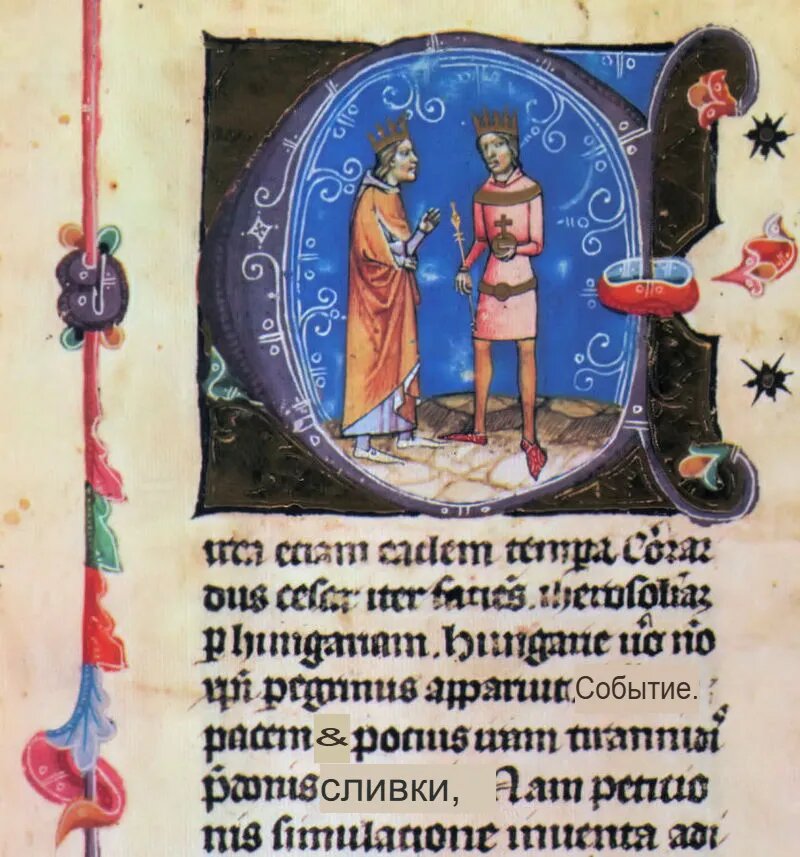 Circa etiam eadem tempꝑa Cōrar
dus cesar iter faciēs iherosolimā
ꝑ hungariam. Hungarie u̅o nō
xp̄i pegrinus apparuit, Событие.
pacem & pocius iram tirannidi
p̄donis сливки, Nam peticio
nis simulatione inuenta adi